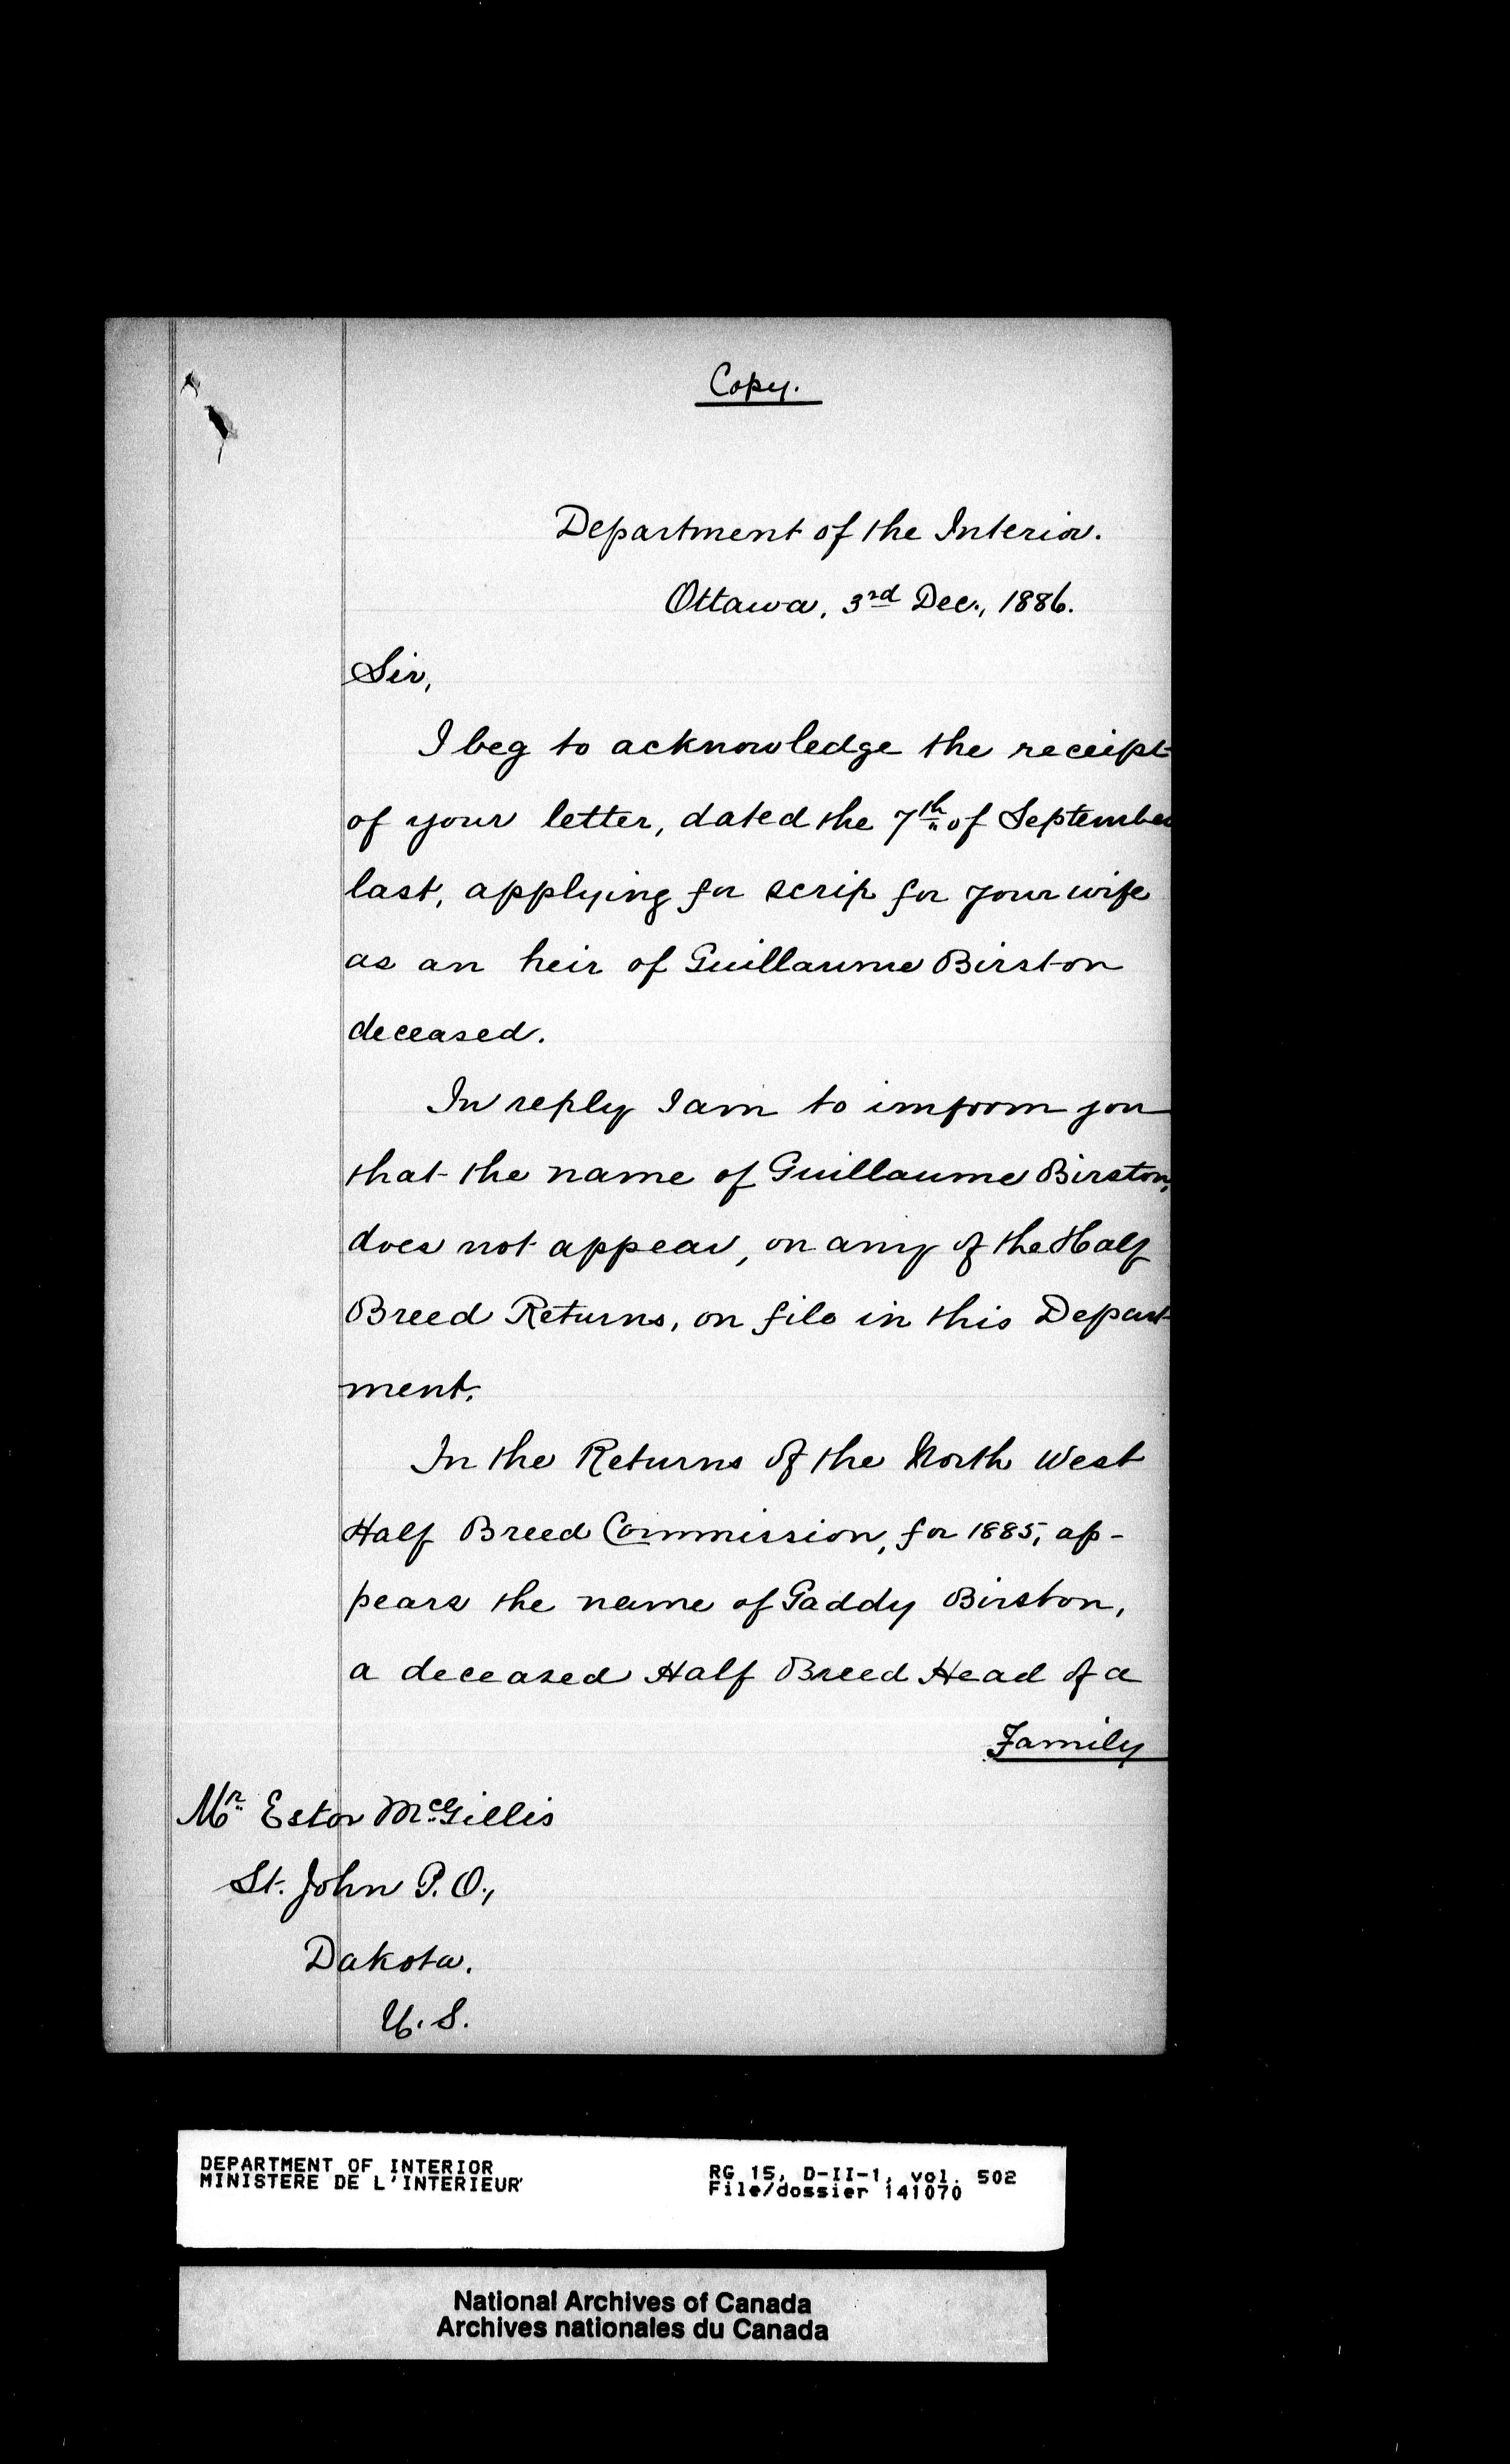 Copy.
Department of the Interior.
Ottawa, 3rd Dec., 1886.
Sir,
I beg to acknowledge the receipt
of your letter, dated the 7th of September
last, applying for scrip for your wife
as an heir of Guillaume Birston
deceased.
In reply I am to imform you
that the name of Guillaume Birston,
does not appear, on any of the Half
Breed Returns, on file in this Depart-
ment.
In the Returns of the North West
Half Breed Commission, for 1885, ap-
pears the name of Gaddy Birston,
a deceased Half Breed Head of a
Family
Mr. Estor McGillis
St. John P.O.,
Dakota.
U.S.
DEPARTMENT OF INTERIOR
MINISTERE DE L'INTERIEUR
RG 15, D-II-1, vol. 502
File/dossier 141070
National Archives of Canada
Archives nationales du Canada